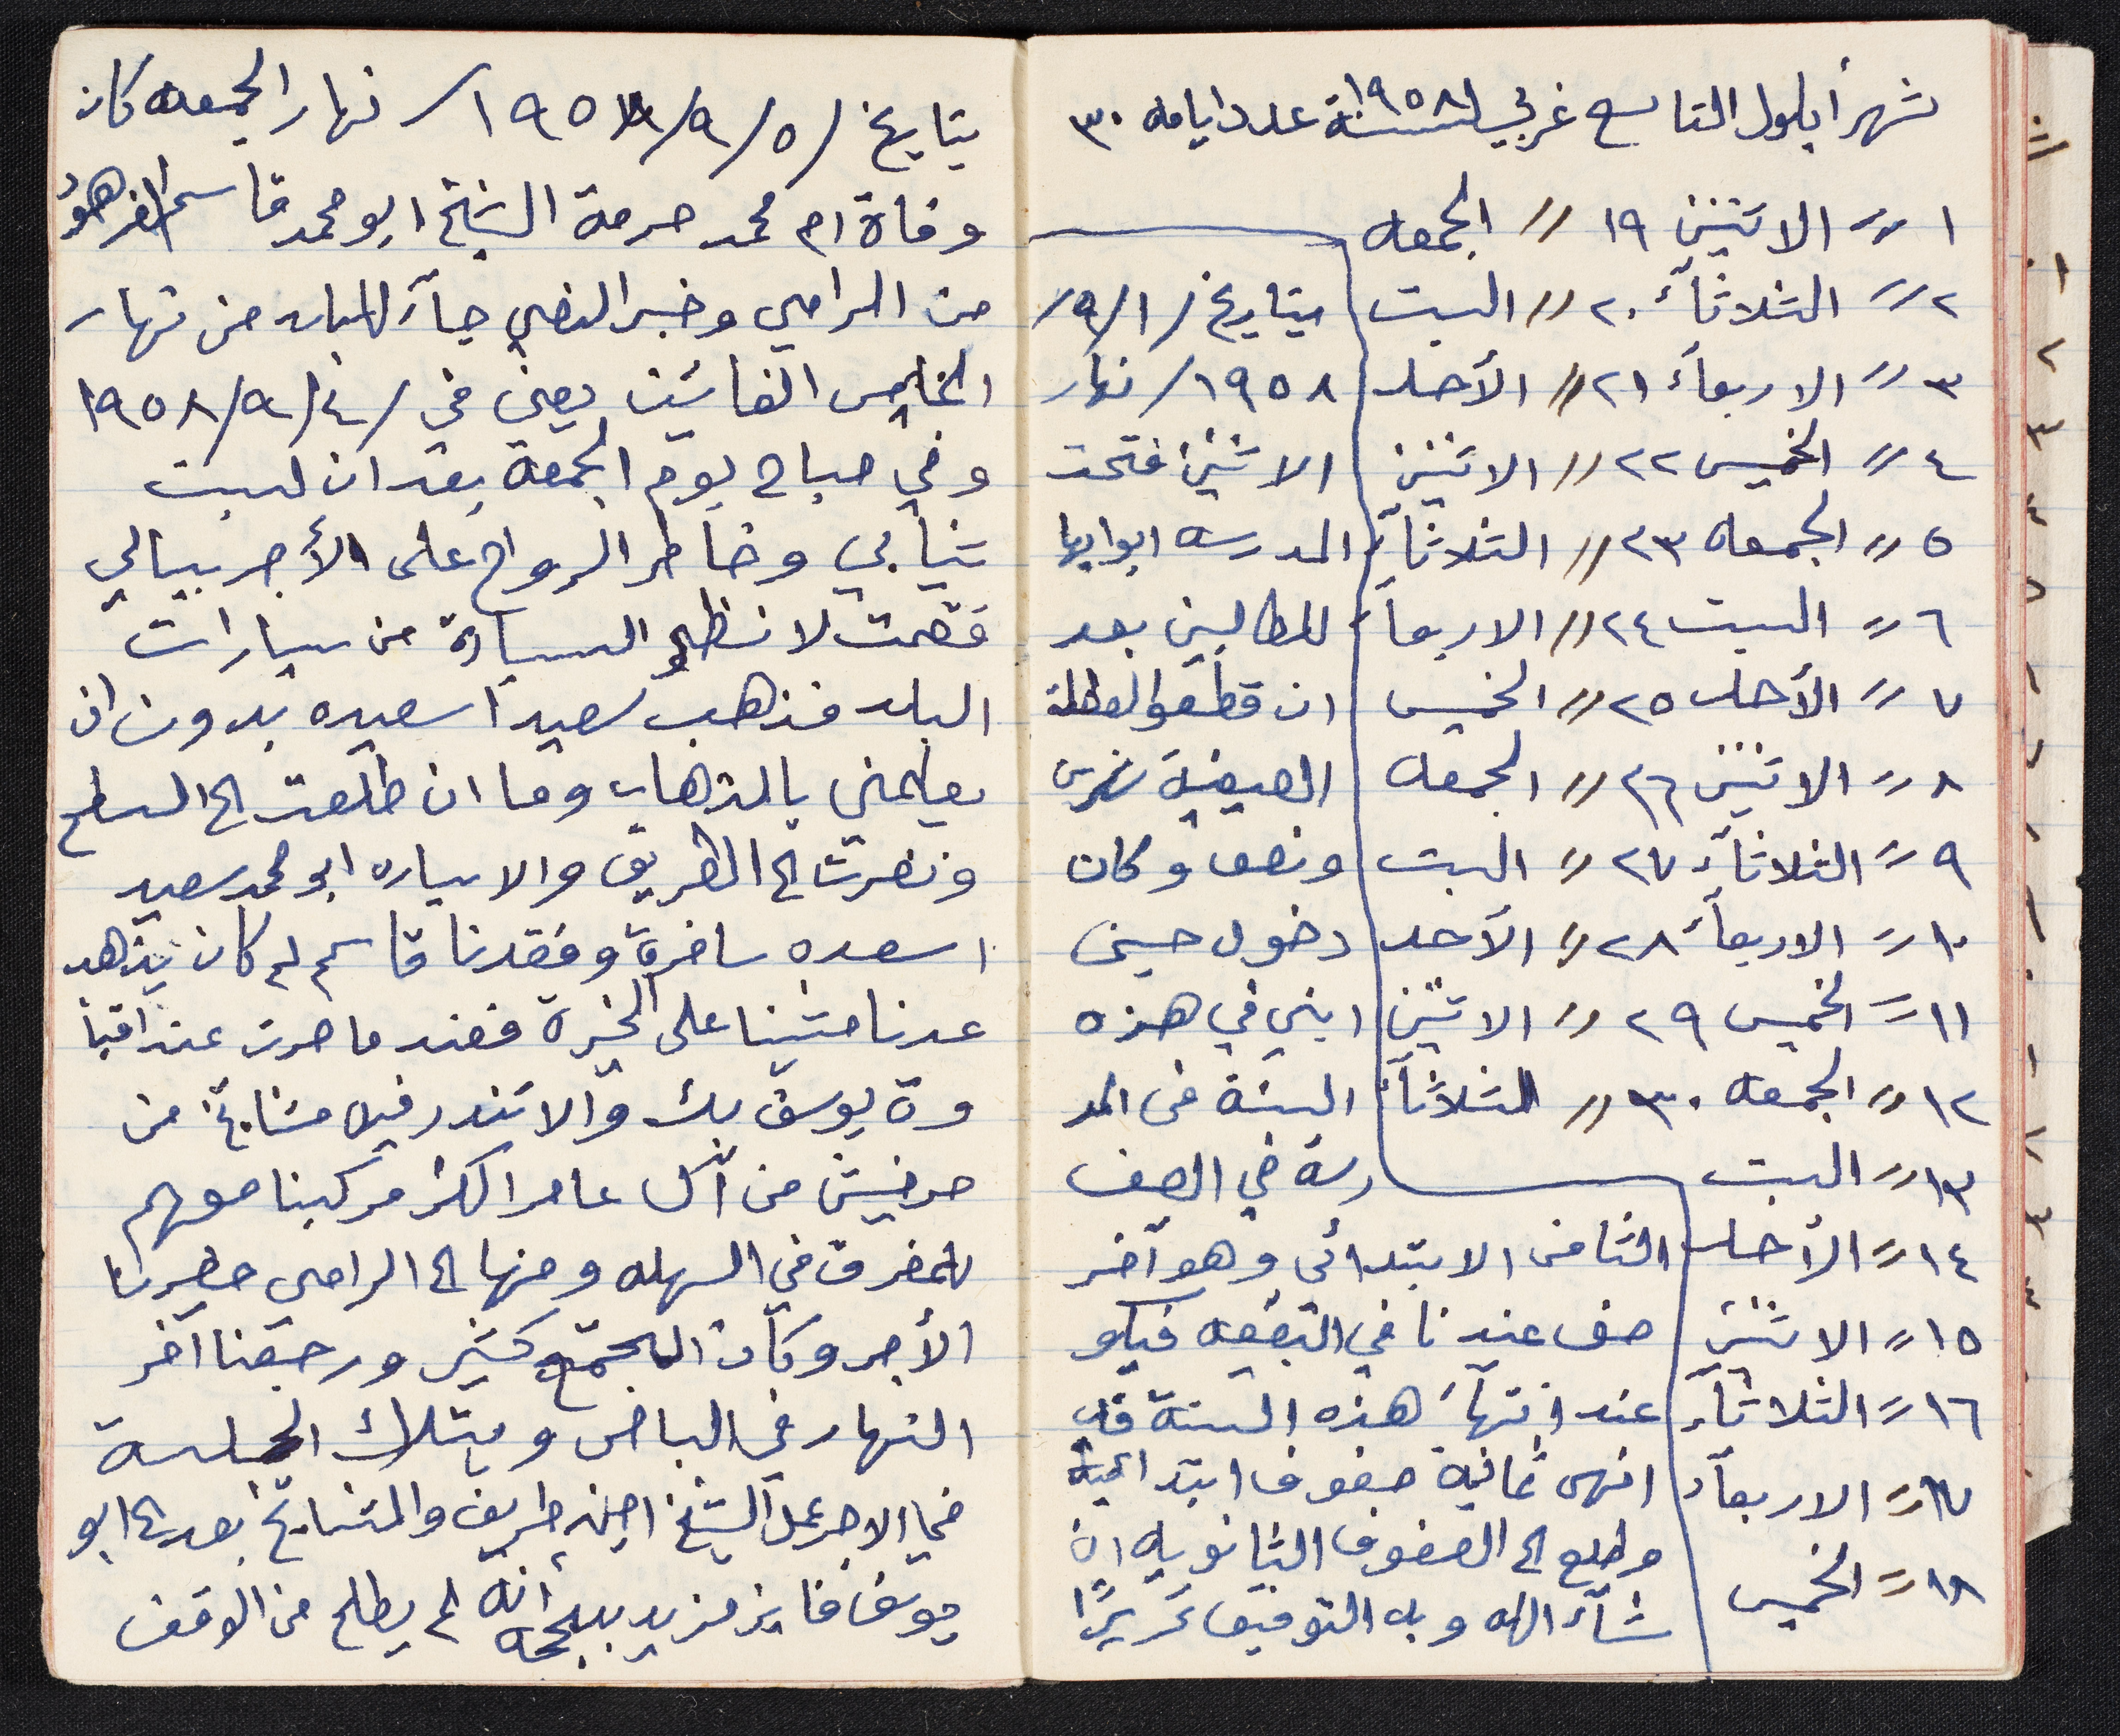 شهر أيلول التاسع غربي لسنة ١٩٥٨ عدد ايامه ٣٠
١ // الاثنين ١٩ // الجمعه
٢ // الثلاثآء ٢٠ // السبت
٣ // الاربعآء ٢١ // الأحد
٤ // الخميس ٢٢ // الاثنين
٥ // الجمعه ٢٣ // الثلاثآء
٦ // السبت ٢٤ // الاربعآء
٧ // الأحد ٢٥ // الخميس
٨ // الاثنين ٢٦ // الجمعه
٩ // الثلاثآء ٢٧ // السبت
١٠ // الاربعآء ٢٨ // الأحد
١١ // الخميس ٢٩ // الاثنين
١٢ // الجمعه ٣٠ // الثلاثآء
١٣ // السبت
١٤ // الأحد
١٥ // الاثنين
١٦ // الثلاثآء
١٧ // الاربعآء
١٨ // الخميس
بتاريخ /٩/١/
١٩٥٨/ نهار
الاثنين فتحت
المدرسه ابوابها
للطالبين بعد
ان قطعوا العطلة
الصيفية شهرين
ونصف وكان
دخول حسين
ابني في هذه
السنة في المد
رسة في الصف
الثامن الابتدائي وهو آخر
صف عندنا في البقيعه فيكو
عند انتهآء هذه السنة قد
انهى ثمانية صفوف ابتدائية
وطلع الى الصفوف الثانويه ان
شآء الله وبه التوفيق تحريرًا
بتاريخ /٥/٩/١٩٥٨/ نهار الجمعه كان
وفاة ام محمد حرمة الشيخ ابو محمد قاسم فرهود
من الرامي وخبر النعي جآء للبلد من نهار
الخميس الفائت يعني في /٤/٩/١٩٥٨
وفي صباح يوم الجمعة بعد ان لبست
ثيابي وخاطر الرواح على الأجر ببالي
فقمت لانظر السيارة من سيارات
البلد فذهب سعيد اسعيده بدون ان
يعلمني بالذهاب وما ان طلعت الى السطح
ونضرت الى الطريق والا سياره ابو محمد سعيد
اسعده سافرة وفقدنا قاسم لم كان يذهد
عدنا مشينا على الخيرة فعند ما صرت عند اقبا
وة يوسف بك والا تندر فيه مشايخ من
حرفيش من آل عامر اكثر فركبنا معهم
للمفرق في السهله ومنها الى الرامي حضرنا
الأجر وكان المجتمع كثير ورجعنا آخر
النهار في الباص وبتلك الجلسة
في الاجر عمل الشيخ امين طريف والمشايخ بعد الى ابو
يوسف فايز مزيد بسجحه أنه لم يطلع من الوقف